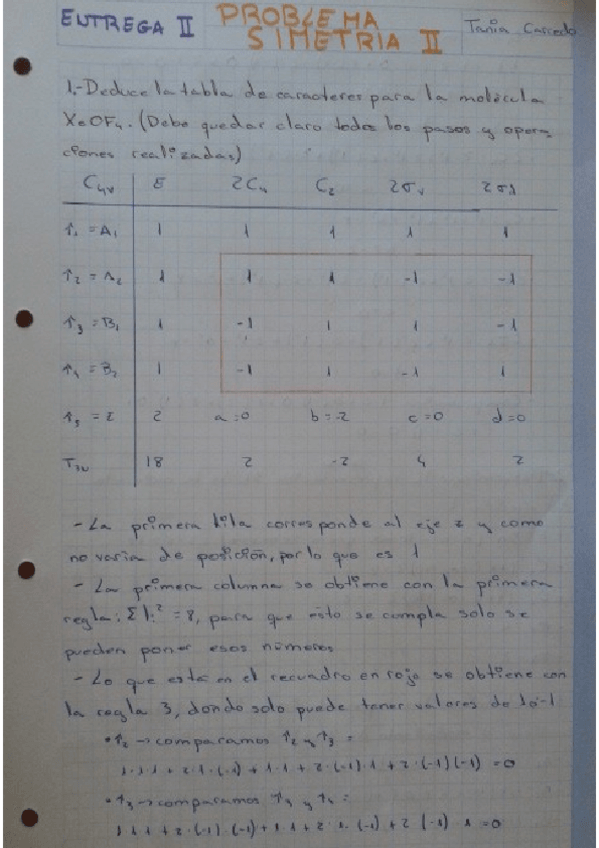 ENTREGA II PROBLEMA SIMETRIA II Tania Carcedo
1.- Deduce la tabla de caracteres para la molécula
XeOF₄. (Debe quedar claro todos los pasos y opera
ciones realizadas)
C₄ᵥ E 2C₄ C₂ 2σᵥ 2σd
Γ₁ = A₁ 1 1 1 1 1
Γ₂ = A₂ 1 1 1 -1 -1
Γ₃ = B₁ 1 -1 1 1 -1
Γ₄ = B₂ 1 -1 1 -1 1
Γ₅ = E 2 a=0 b=-2 c=0 d=0
Γ₃N 18 2 -2 4 2
- La primera fila corresponde al eje z y como
no varia de posición, por lo que es 1
- La primera columna se obtiene con la primera
regla: Σ lᵢ² = 8, para que esto se cumpla solo se
pueden poner esos números
- Lo que está en el recuadro en rojo se obtiene con
la regla 3, dondo solo puede tener valores de 1 ó -1
• Γ₂ → comparamos Γ₂ y Γ₃ =
1·1·1 + 2·1·(-1) + 1·1 + 2·(-1)·1 + 2·(-1)(-1) = 0
• Γ₃ → comparamos Γ₃ y Γ₄ :
1·1·1 + 2·(-1)·(-1) + 1·1 + 2·1·(-1) + 2(-1)·1 = 0